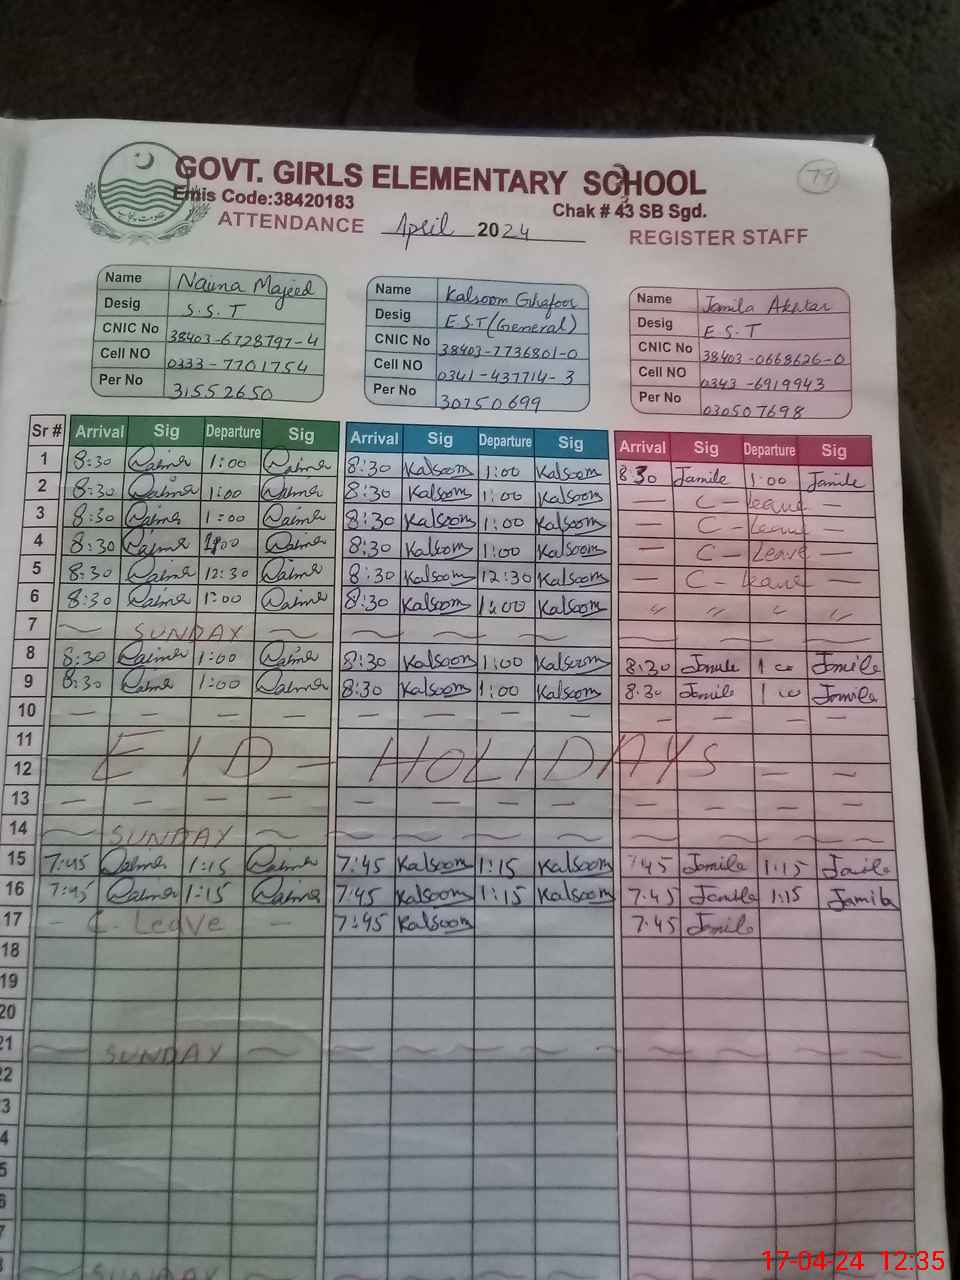 79
GOVT. GIRLS ELEMENTARY SCHOOL
Emis Code:38420183
Chak # 43 SB Sgd.
ATTENDANCE April 2024 REGISTER STAFF
Name Naima Majeed
Desig S.S.T
CNIC No 38403-6728797-4
Cell NO 0333-7701754
Per No 31552650
Name Kalsoom Ghafoor
Desig E.S.T (General)
CNIC No 38403-7736801-0
Cell NO 0341-437714-3
Per No 30750699
Name Jamila Akhtar
Desig E.S.T
CNIC No 38403-0668626-0
Cell NO 0343-6919943
Per No 030507698
Sr # Arrival Sig Departure Sig Arrival Sig Departure Sig Arrival Sig Departure Sig
1 8:30 Naima 1:00 Naima 8:30 Kalsoom 1:00 Kalsoom 8 30 Jamila 1:00 Jamila
2 8:30 Naima 1:00 Naima 8:30 Kalsoom 1:00 Kalsoom — C - leave —
3 8:30 Naima 1:00 Naima 8:30 Kalsoom 1:00 Kalsoom — C - Leave
4 8:30 Naima 1:00 Naima 8:30 Kalsoom 1:00 Kalsoom — C - Leave —
5 8:30 Naima 12:30 Naima 8:30 Kalsoom 12:30 Kalsoom — C - leave —
6 8:30 Naima 1:00 Naima 8:30 Kalsoom 1:00 Kalsoom " " " "
7 SUNDAY
8 8:30 Naima 1:00 Naima 8:30 Kalsoom 1:00 Kalsoom 8:30 Jamila 1 00 Jamila
9 8:30 Naima 1:00 Naima 8:30 Kalsoom 1:00 Kalsoom 8:30 Jamila 1 00 Jamila
10 — — — — — — — — — — —
11 EID - HOLIDAYS
12 — —
13 — — — — — — — — — — — —
14 SUNDAY
15 7:45 Naima 1:15 Naima 7:45 Kalsoom 1:15 Kalsoom 7 45 Jamila 1:15 Jamila
16 7:45 Naima 1:15 Naima 7:45 Kalsoom 1:15 Kalsoom 7:45 Jamila 1:15 Jamila
17 — C. Leave — 7:45 Kalsoom 7:45 Jamila
18
19
20
21 SUNDAY
22
3
4
5
6
7
SUNDAY
17-04-24 12:35